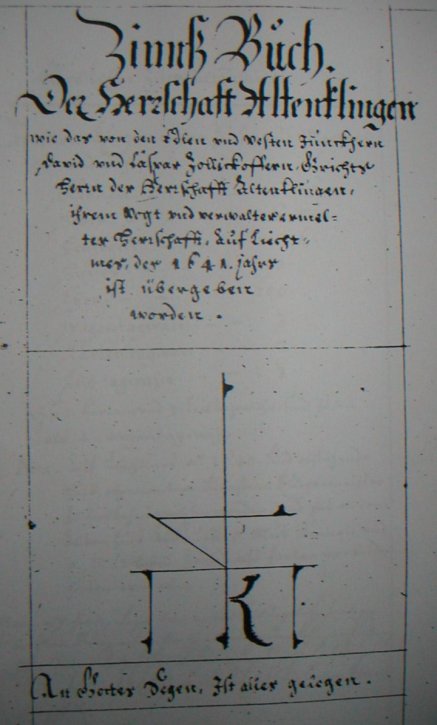 Zinnß Bůch.
Der Herrschafft Altenklingen
wie das von den Edlen und vesten Junckhern
David und Caspar Zollickoffern, Grichts
Herrn der Herrschafft Altenklingen,
ihrem Vogt und verwalter ermel=
ter Herrschafft, Auf Liecht=
mes, des 1641. jahrs
ist übergeben
worden.
I K I
An Gottes Segen, Ist alles gelegen.